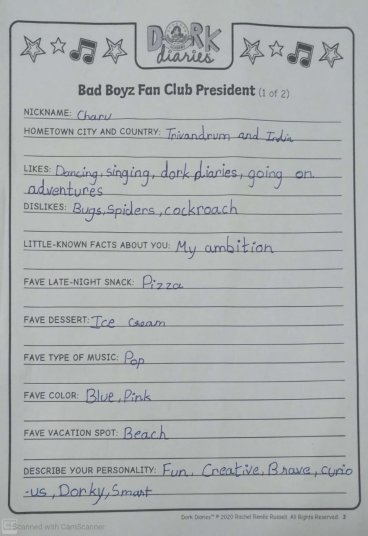 DORK
diaries
Bad Boyz Fan Club President (1 of 2)
NICKNAME: Charu
HOMETOWN CITY AND COUNTRY: Trivandrum and India
LIKES: Dancing, singing, dork diaries, going on
adventures
DISLIKES: Bugs, Spiders, cockroach
LITTLE-KNOWN FACTS ABOUT YOU: My ambition
FAVE LATE-NIGHT SNACK: Pizza
FAVE DESSERT: Ice cream
FAVE TYPE OF MUSIC: Pop
FAVE COLOR: Blue, Pink
FAVE VACATION SPOT: Beach
DESCRIBE YOUR PERSONALITY: Fun, Creative, Brave, curio
-us, Dorky, Smart
Dork Diaries™ © 2020 Rachel Renée Russell. All Rights Reserved. 2
CS Scanned with CamScanner